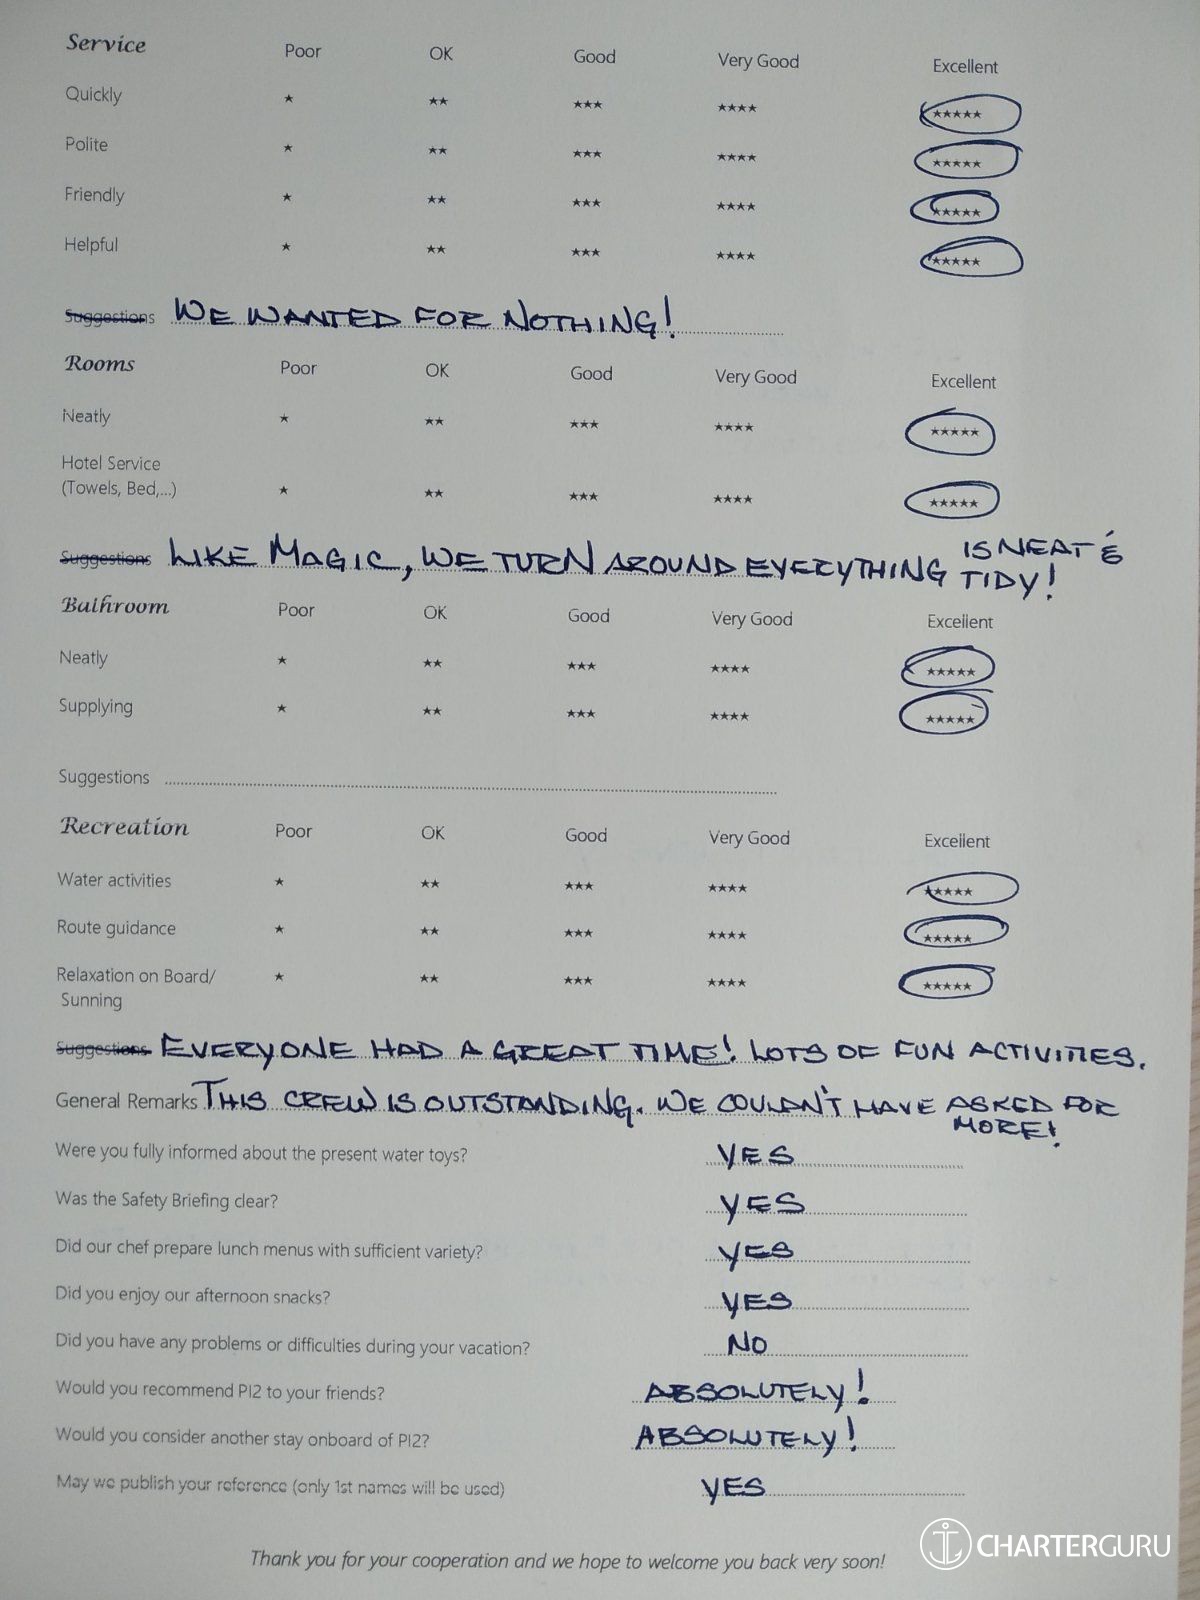 Service Poor OK Good Very Good Excellent
Quickly ★ ★★ ★★★ ★★★★ ★★★★★
Polite ★ ★★ ★★★ ★★★★ ★★★★★
Friendly ★ ★★ ★★★ ★★★★ ★★★★★
Helpful ★ ★★ ★★★ ★★★★ ★★★★★
Suggestions WE WANTED FOR NOTHING!
Rooms Poor OK Good Very Good Excellent
Neatly ★ ★★ ★★★ ★★★★ ★★★★★
Hotel Service
(Towels, Bed,...) ★ ★★ ★★★ ★★★★ ★★★★★
Suggestions LIKE MAGIC, WE TURN AROUND EVERYTHING IS NEAT &
TIDY!
Bathroom Poor OK Good Very Good Excellent
Neatly ★ ★★ ★★★ ★★★★ ★★★★★
Supplying ★ ★★ ★★★ ★★★★ ★★★★★
Suggestions
Recreation Poor OK Good Very Good Excellent
Water activities ★ ★★ ★★★ ★★★★ ★★★★★
Route guidance ★ ★★ ★★★ ★★★★ ★★★★★
Relaxation on Board/ ★ ★★ ★★★ ★★★★ ★★★★★
Sunning
Suggestions EVERYONE HAD A GREAT TIME! LOTS OF FUN ACTIVITIES.
General Remarks THIS CREW IS OUTSTANDING. WE COULDN'T HAVE ASKED FOR
MORE!
Were you fully informed about the present water toys? YES
Was the Safety Briefing clear? YES
Did our chef prepare lunch menus with sufficient variety? YES
Did you enjoy our afternoon snacks? YES
Did you have any problems or difficulties during your vacation? NO
Would you recommend PI2 to your friends? ABSOLUTELY!
Would you consider another stay onboard of PI2? ABSOLUTELY!
May we publish your reference (only 1st names will be used) YES
Thank you for your cooperation and we hope to welcome you back very soon!
CHARTERGURU